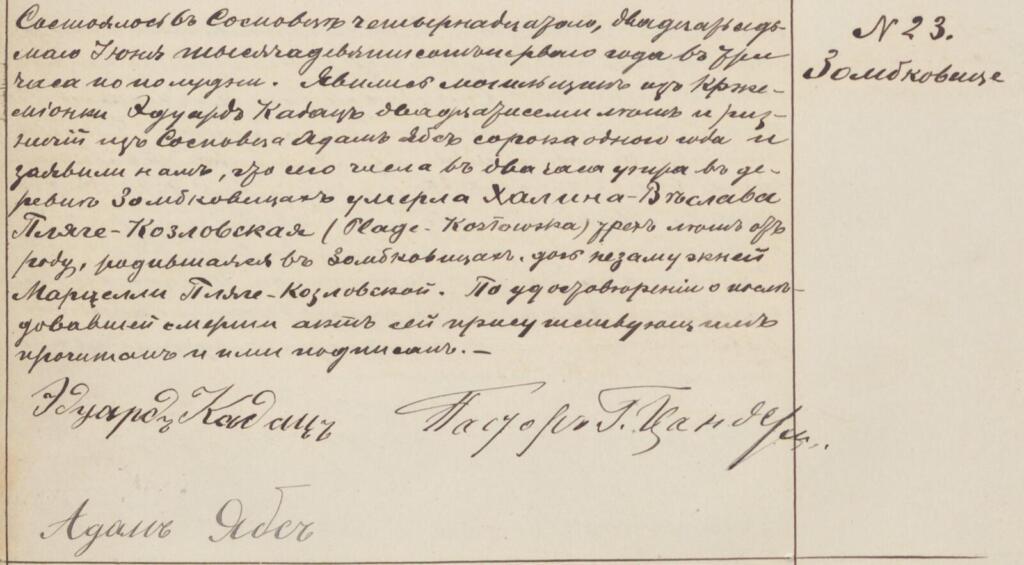 Состоялось въ Сосновцѣ четырнадцатаго, двадцать седь-
маго Іюня тысяча девятисотъ перваго года въ три
часа по полудни. Явились могильщикъ изъ Крже-
міонки Эдуардъ Кабацъ двадцати семи лѣтъ и риз-
ничій изъ Сосновца Адамъ Ябсъ сорока одного года и
заявили намъ, что сего числа въ два часа утра въ де-
ревнѣ Зомбковицахъ умерла Халина-Вѣслава
Пляге-Козловская (Plage-Kozłowska) трехъ лѣтъ отъ
роду, родившаяся въ Зомбковицахъ, дочь незамужней
Марцелли Пляге-Козловской. По удостовѣреніи о послѣ-
довавшей смерти актъ сей присутствующимъ
прочитанъ и ими подписанъ. —
Эдуардъ Кабацъ
Пасторъ Г. Цандеръ
Адамъ Ябсъ
N 23.
Зомбковице